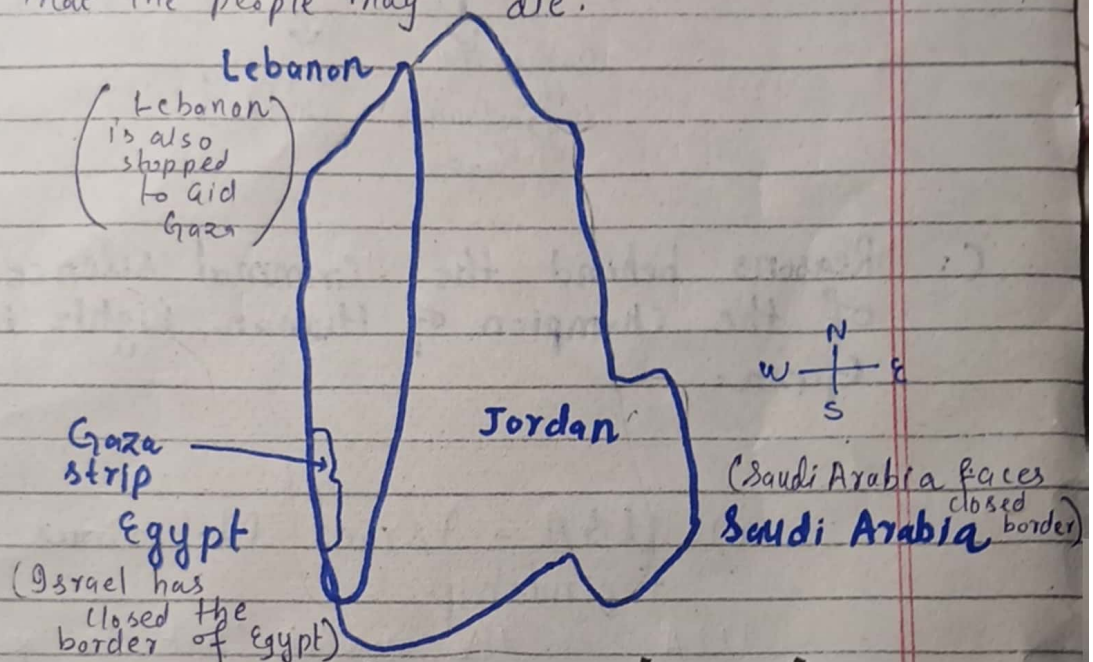 that the people may die.
Lebanon
(Lebanon
is also
stopped
to aid
Gaza)
N
W E
S
Jordan
Gaza
strip
(Saudi Arabia faces
closed
border)
Saudi Arabia
Egypt
(Israel has
closed the
border of Egypt)